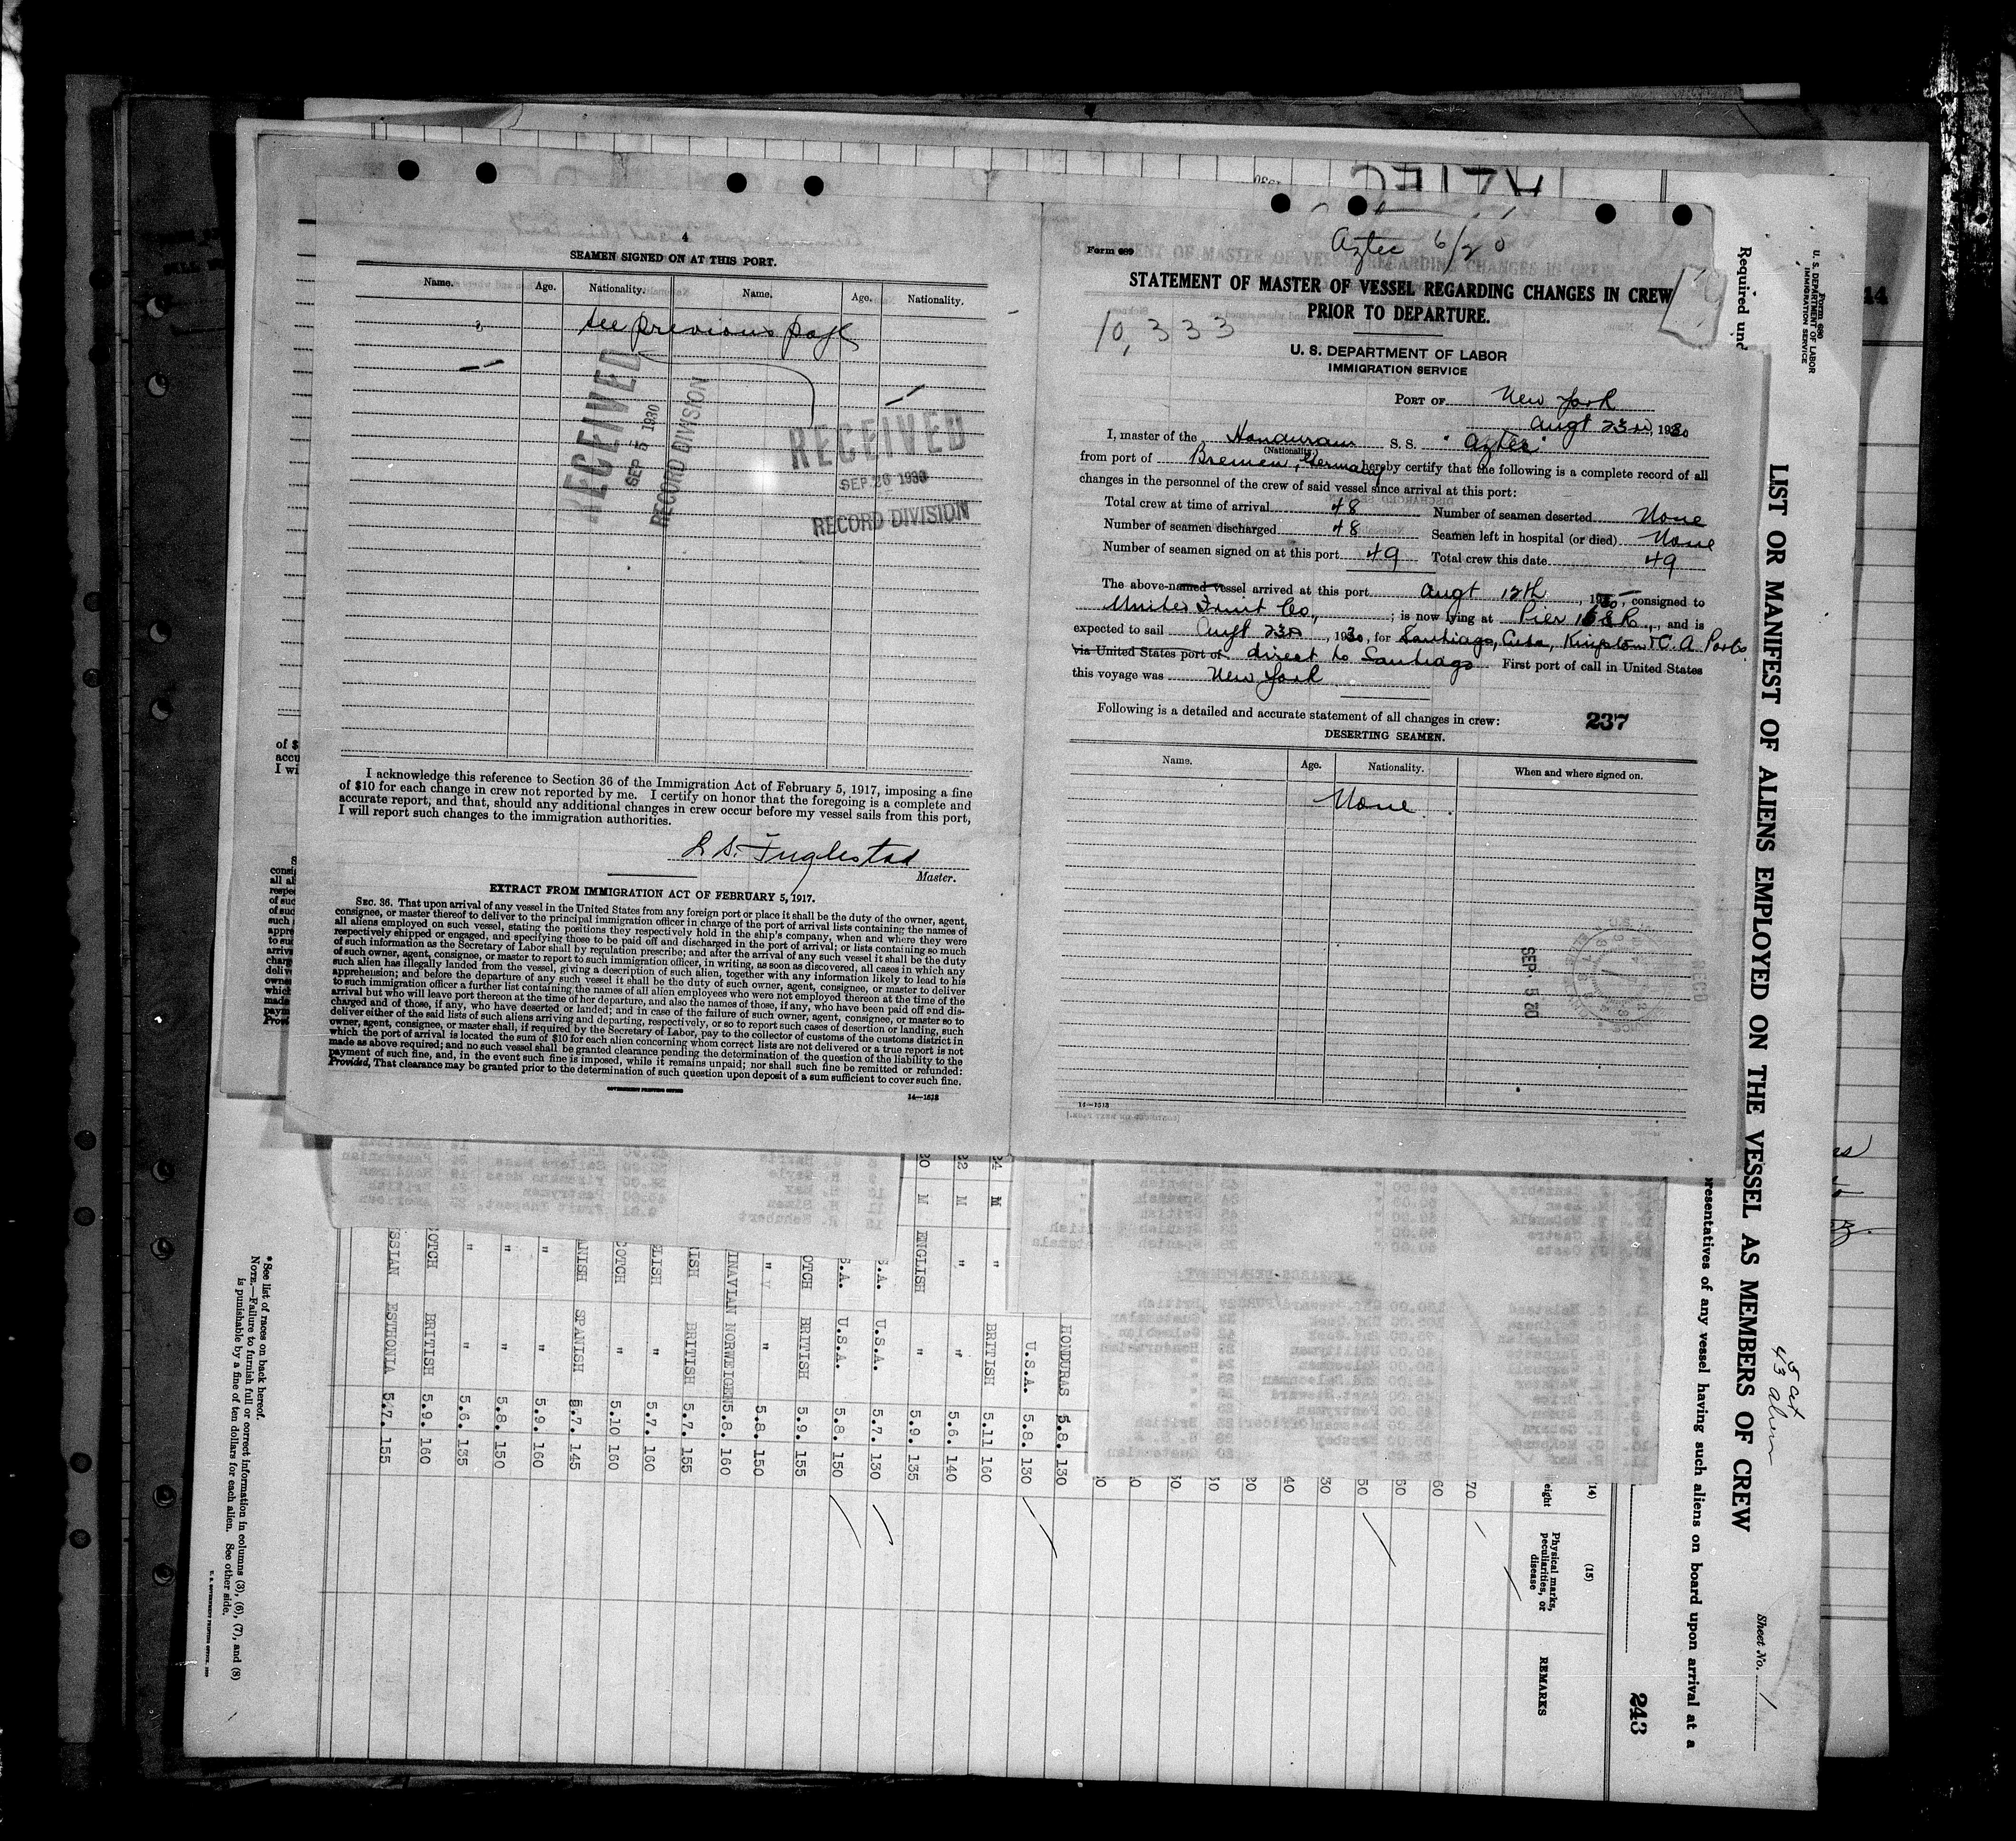 AZTEC
4
SEAMEN SIGNED ON AT THIS PORT.
Name. Age. Nationality. Name. Age. Nationality.
See previous page
RECEIVED
SEP 5 1930
RECORD DIVISION
RECEIVED
SEP 26 1930
RECORD DIVISION
I acknowledge this reference to Section 36 of the Immigration Act of February 5, 1917, imposing a fine
of $10 for each change in crew not reported by me. I certify on honor that the foregoing is a complete and
accurate report, and that, should any additional changes in crew occur before my vessel sails from this port,
I will report such changes to the immigration authorities.
Master.
EXTRACT FROM IMMIGRATION ACT OF FEBRUARY 5, 1917.
SEC. 36. That upon arrival of any vessel in the United States from any foreign port or place it shall be the duty of the owner, agent,
consignee, or master thereof to deliver to the principal immigration officer in charge of the port of arrival lists containing the names of
all aliens employed on such vessel, stating the positions they respectively hold in the ship's company, when and where they were
respectively shipped or engaged, and specifying those to be paid off and discharged in the port of arrival; or lists containing so much
of such information as the Secretary of Labor shall by regulation prescribe; and after the arrival of any such vessel it shall be the duty
of such owner, agent, consignee, or master to report to such immigration officer, in writing, as soon as discovered, all cases in which any
such alien has illegally landed from the vessel, giving a description of such alien, together with any information likely to lead to his
apprehension; and before the departure of any such vessel it shall be the duty of such owner, agent, consignee, or master to deliver
to such immigration officer a further list containing the names of all alien employees who were not employed thereon at the time of the
arrival but who will leave port thereon at the time of her departure, and also the names of those, if any, who have been paid off and dis-
charged and of those, if any, who have deserted or landed; and in case of the failure of such owner, agent, consignee, or master so to
deliver either of the said lists of such aliens arriving and departing, respectively, or so to report such cases of desertion or landing, such
owner, agent, consignee, or master shall, if required by the Secretary of Labor, pay to the collector of customs of the customs district in
which the port of arrival is located the sum of $10 for each alien concerning whom correct lists are not delivered or a true report is not
made as above required; and no such vessel shall be granted clearance pending the determination of the question of the liability to the
payment of such fine, and, in the event such fine is imposed, while it remains unpaid; nor shall such fine be remitted or refunded:
Provided, That clearance may be granted prior to the determination of such question upon deposit of a sum sufficient to cover such fine.
GOVERNMENT PRINTING OFFICE
14—1513
Form 689
Aztec 6/20
STATEMENT OF MASTER OF VESSEL REGARDING CHANGES IN CREW
PRIOR TO DEPARTURE.
10,333
U. S. DEPARTMENT OF LABOR
IMMIGRATION SERVICE
PORT OF New York
Augt 23rd, 1930
I, master of the Honduran S. S. "Aztec"
(Nationality.)
from port of Bremen, Germany hereby certify that the following is a complete record of all
changes in the personnel of the crew of said vessel since arrival at this port:
Total crew at time of arrival 48 Number of seamen deserted None
Number of seamen discharged 48 Seamen left in hospital (or died) None
Number of seamen signed on at this port 49 Total crew this date 49
The above-named vessel arrived at this port Augt 12th, 1930, consigned to
United Fruit Co, ; is now lying at Pier, and is
expected to sail Augt 23rd, 1930, for Santiago, Cuba, Kingston & C. A. Ports
via United States port of direct to Santiago. First port of call in United States
this voyage was New York
Following is a detailed and accurate statement of all changes in crew:
237
DESERTING SEAMEN.
Name. Age. Nationality. When and where signed on.
None
SEP 5
REC'D
14—1513
Form 680
U. S. DEPARTMENT OF LABOR
IMMIGRATION SERVICE
Required und
LIST OR MANIFEST OF ALIENS EMPLOYED ON THE VESSEL AS MEMBERS OF CREW
resentatives of any vessel having such aliens on board upon arrival at a
Sheet No. 1
243
5 cit
43 alien
44
(14)
eight
(15)
Physical marks, peculiarities, or disease
REMARKS
HONDURAS 5.8. 130
U.S.A. 5.8. 130
24 M " BRITISH 5.11 160
22 M " " 5.6. 140
20 M ENGLISH " 5.9. 135
S.A. U.S.A. 5.7. 130
S.A. U.S.A. 5.8. 150
OTCH BRITISH 5.9. 155
" " 5.8. 150
INAVIAN NORWEIGEN 5.8. 160
RISH BRITISH 5.7. 155
LISH " 5.7. 160
COTCH " 5.10 160
ANISH SPANISH 5.7. 145
" " 5.9. 160
" " 5.8. 150
" " 5.6. 135
OTCH BRITISH 5.9. 160
SSIAN ESTHONIA 5.7. 155
*See list of races on back hereof.
NOTE.—Failure to furnish full or correct information in columns (3), (6), (7), and (8)
is punishable by a fine of ten dollars for each alien. See other side.